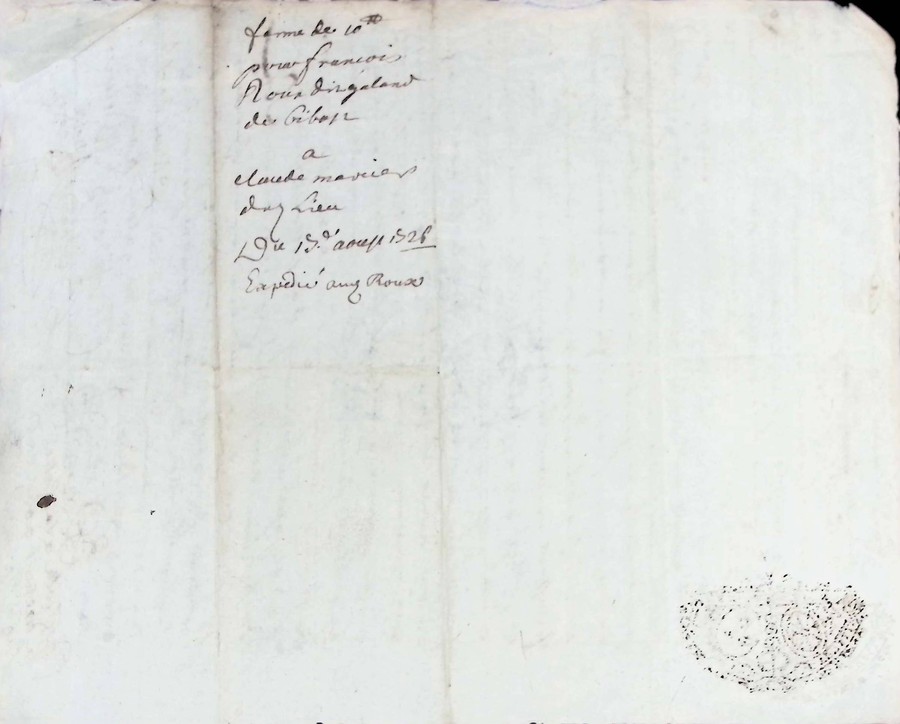 ferme de 10tt
pour francois
Roux dit galand
de
a
claude mercier
du lieu
Du 15.e aoust 1726
Expedié aud Roux